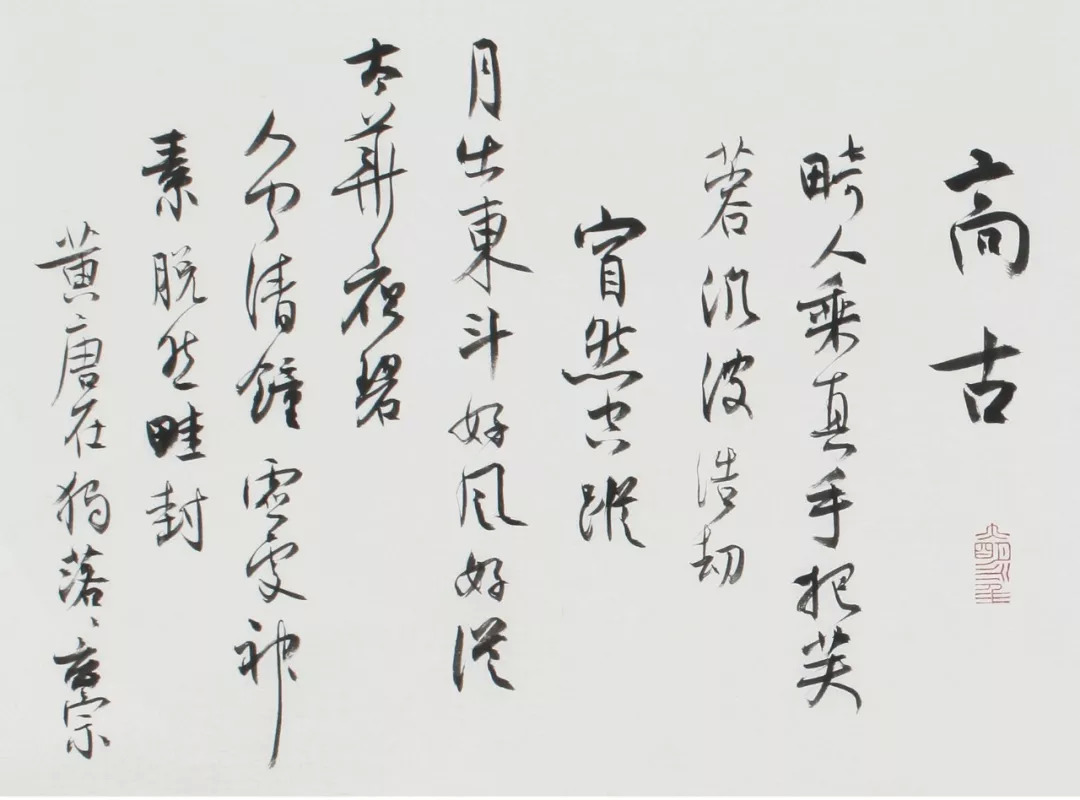 高古
畸人乘真手把芙
蓉汎波浩劫
窅然空蹤
月出東斗好風好從
太華夜碧
人聞清鐘虛神
素脫然畦封
黃唐在獨落、玄宗